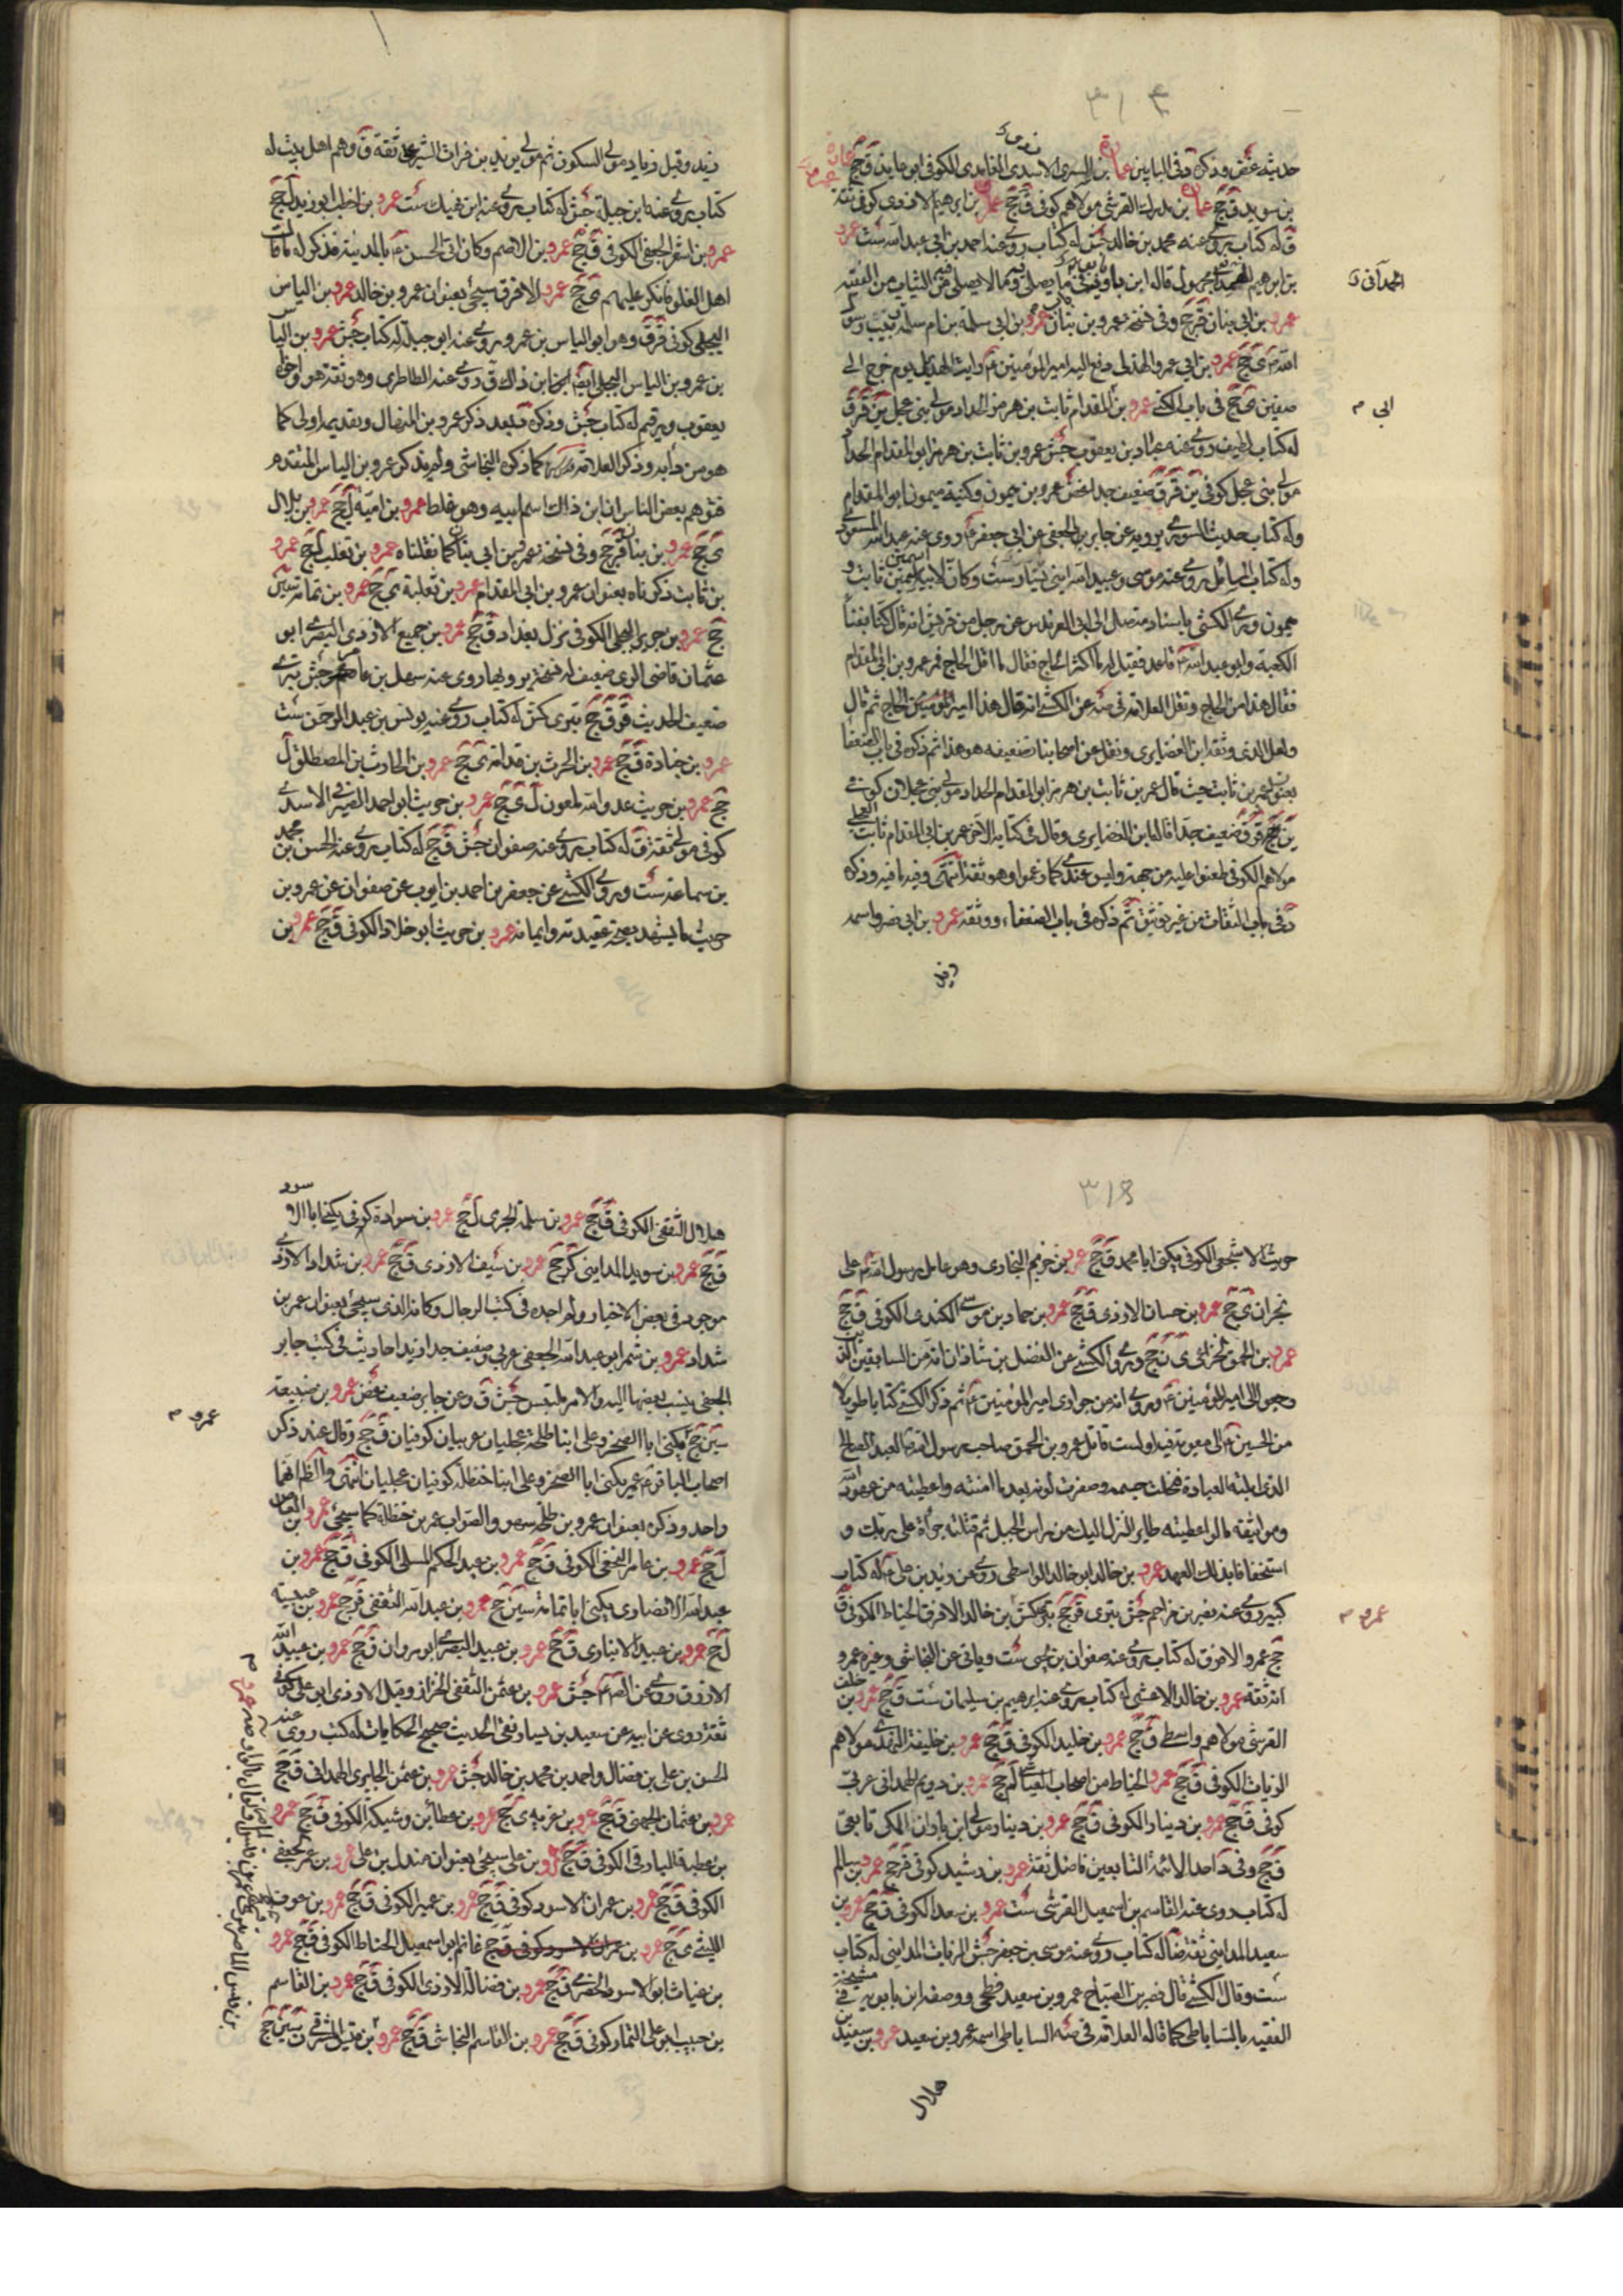 ٣١٤
حديثه غض وذكره د في البابين عمارة بن السرى الاسدى الغامدى الكوفي ابو عايذ ق جخ
بن سويد ق جخ عمارة بن مدرك القرشي مولاهم كوفي ق جخ عمارة بن ابرهيم الازدى كوفي ثقة
ق له كتاب يروى عنه محمد بن خالد جش له كتاب روى عنه احمد بن ابي عبد الله ست عمرو
بن ابرهيم قاله ابن بابويه في ما يصلى فيه وما لا يصلى فيه من الثياب من الفقيه
عمرو بن ابي بنان ق جخ وفي نسخة عمرو بن بنان عمرو بن ابي سلمة بن ام سلمة ربيب رسول
الله ى جخ عمرو بن ابي عمرو الهذلى دفع اليه امير المؤمنين راية الهذيل يوم خرج الى
صفين ى جخ في باب الكنى عمرو بن ابي المقدام ثابت بن هرمز الحداد مولى بني عجل ين ق ق
له كتاب لطيف روى عنه عباد بن يعقوب جش عمرو بن ثابت بن هرمز ابو المقدام الحداد
مولى بني عجل كوفي ين ق ق ضعيف جدا غض عمرو بن ميمون وكنية ميمون ابو المقدام
وله كتاب حديث الشورى يرويه عن جابر بن الجعفي عن ابي جعفر روى عنه عبد الله المسعودي
وله كتاب المسائل روى عنه موسى وعبيد الله ابني يسار ست وكان لابيه اسمين ثابت و
ميمون وروى الكشي باسناد متصل الى ابي العرندس عن رجل من قريش انه قال كنا بفناء
الكعبة وابو عبد الله قاعد فقيل له ما اكثر الحاج فقال ما اقل الحاج فمر عمرو بن ابي المقدام
فقال هذا من الحاج ونقل العلامة في صه عن الكشي انه قال هذا امير الحاج ثم قال
ولعل الذي وثقه ابن الغضايرى ونقل عن اصحابنا تضعيفه هو هذا ثم ذكره في باب الضعفا
بعنوان عمر بن ثابت حيث قال عمر بن ثابت بن هرمز ابو المقدام الحداد مولى بني عجل كوفي
ين جخ ق ق ضعيف جدا قاله ابن الغضايرى وقال في كتابه الاخر عمر بن ابي المقدام ثابت العجلي
مولاهم الكوفي طعنوا عليه من جهة وليس عندى كما زعموا وهو ثقة انتهى وفيه ما فيه وذكره
د في باب الثقات من غير توثيق ثم ذكره في باب الضعفاء ووثقه عمرو بن ابي نصر واسمه
زيد
ابي م
زيد وقيل زياد مولى السكون ثم مولى يزيد بن فرات الشرعبي ثقة ق وهم اهل بيت له
كتاب يروى عنه ابن جبلة جش له كتاب يروى عنه ابن نهيك ست عمرو بن اخطب ابو زيد ل جخ
عمرو بن اشقر الجعفي الكوفي ق جخ عمرو بن الاهتم وكان اتى الحسن بالمدينة فذكر له مقالة
اهل الغلو فانكر عليهم ى جخ عمرو الافرق سيجئ بعنوان عمرو بن خالد عمرو بن الياس
البجلى كوفي ق ق وهو ابو الياس بن عمرو روى عنه ابو جبلة له كتاب جش عمرو بن الياس
بن عمرو بن الياس البجلى ايضا ابن ابن ذاك ق روى عنه الطاطرى وهو ثقة هو واخواه
يعقوب ورقيم له كتاب جش وذكره د بعد ذكر عمرو بن المنهال وتقديمه اولى كما
هو من دأبه وذكر العلامة كما ذكره النجاشى ولم يذكر عمرو بن الياس المتقدم
فتوهم بعض الناس ان ابن ذاك اسم ابيه وهو غلط عمرو بن امية ل جخ عمرو بن بلال
ى جخ عمرو بن بنان ق جخ وفي نسخة عمرو بن ابي بنان كما نقلناه عمرو بن تغلب ل جخ عمرو
بن ثابت ذكرناه بعنوان عمرو بن ابي المقدام عمرو بن ثعلبة ى جخ عمرو بن ثمامة
جخ عمرو بن جرير البجلى الكوفي نزل بغداد ق جخ عمرو بن جميع الازدى البصرى ابو
عثمان قاضى الرى ضعيف له نسخة يرويها روى عنه سهل بن عامر جش بترى
ضعيف الحديث ق ق جخ بترى كش له كتاب روى عنه يونس بن عبد الرحمن ست
عمرو بن جنادة ق جخ عمرو بن الحرث بن قدامة ى جخ عمرو بن الحارث بن المصطلق ل
جخ عمرو بن حريث عدو الله ملعون ل ى جخ عمرو بن حريث ابو احمد الصيرفي الاسدى
كوفي مولى ثقة ق له كتاب يروى عنه صفوان جش ق جخ له كتاب يروى عنه الحسن بن محمد
بن سماعة ست وروى الكشي عن جعفر بن احمد بن ايوب عن صفوان عن عمرو بن
حريث ما يشهد بصحة عقيدته وايمانه عمرو بن حريث ابو خلاد الكوفي ق جخ عمرو بن
٣١٥
حريث الاشجعى الكوفي يكنى ابا محمد ق جخ عمرو بن حزم النجارى وهو عامل رسول الله على
نجران ى جخ عمرو بن حسان الازدى ق جخ عمرو بن حماد بن موسى الكندى الكوفي ق جخ
عمرو بن الحمق الخزاعى ى ن جخ وروى الكشي عن الفضل بن شاذان انه من السابقين الذين
رجعوا الى امير المؤمنين وروى انه من حوارى امير المؤمنين ثم ذكر الكشي كتابا طويلا
من الحسين الى معوية فيه اولست قاتل عمرو بن الحمق صاحب رسول الله العبد الصالح
الذى ابلته العبادة فنحلت جسمه وصفرت لونه بعد ما امنته واعطيته من عهود الله
ومواثيقه ما لو اعطيته طايرا لنزل اليك من راس الجبل ثم قتلته جرأة على ربك و
استخفافا بذلك العهد عمرو بن خالد ابو خالد الواسطى روى عن زيد بن على له كتاب
كبير روى عنه نصر بن مزاحم جش بترى ق جخ بترى كش بن خالد الافرق الحناط الكوفي ق
جخ عمرو الافرق له كتاب يروى عنه صفوان بن يحيى ست وياتى عن النجاشى وغيره عمر و
انه ثقة عمرو بن خالد الاعشى له كتاب يروى عنه ابرهيم بن سليمان ست ق جخ عمرو بن خلف
القرشى مولاهم واسطى ق جخ عمرو بن خليد الكوفي ق جخ عمرو بن خليفة النهدى مولاهم
الزيات الكوفي ق جخ عمرو الخياط من اصحاب العياشى لم جخ عمرو بن دويم الهمدانى عربى
كوفي ق جخ عمرو بن دينار الكوفي ق جخ عمرو بن دينار مولى ابن باذان المكى تابعى
ق جخ وفي د احد الائمة التابعين فاضل ثقة عمرو بن رشيد كوفي ق جخ عمرو بن سالم
له كتاب روى عنه القاسم بن اسمعيل القرشى ست عمرو بن سعد الكوفي ق جخ عمرو بن
سعيد المداينى ثقة ضا له كتاب روى عنه موسى بن جعفر جش الزيات المداينى له كتاب
ست وقال الكشي قال نصر بن الصباح عمرو بن سعيد فطحى ووصفه ابن بابويه في مشيخة
الفقيه بالساباطى كما قاله العلامة في صه الساباطى اسمه عمرو بن سعيد عمرو بن سعيد بن
هلال
عمرو م
هلال الثقفى الكوفي ق جخ عمرو بن سلمة الجرمى ل جخ عمرو بن سوادة كوفي يكنى ابا الاسود
ق جخ عمرو بن سويد المداينى ق جخ عمرو بن سيف الازدى ق جخ عمرو بن شداد الازدى
موجود في بعض الاخبار ولم اجده في كتب الرجال وكانه الذى سيجئ بعنوان عمر بن
شداد عمرو بن شمر ابو عبد الله الجعفى عربى ضعيف جدا زيد احاديث في كتب جابر
الجعفى ينسب بعضها اليه والامر ملتبس جش ق وعن جابر ضعيف غض عمرو بن ضبيعة
سين جخ يكنى ابا الصخر وعلى ابنا طلحة عجليان عربيان كوفيان ق جخ وقال عند ذكر
اصحاب الباقر عمير يكنى ابا الصخر وعلى ابنا حنظلة كوفيان عجليان انتهى والظ انهما
واحد وذكره بعنوان عمرو بن طلحة سهو والصواب عمر بن حنظلة كما سيجئ عمرو بن العاص
ل جخ عمرو بن عامر النخعى الكوفي ق جخ عمرو بن عبد الحكم المسلى الكوفي ق جخ عمرو بن
عبد الله الانصارى يكنى ابا ثمامة سين جخ عمرو بن عبد الله الثقفى ق جخ عمرو بن عبسة
ل جخ عمرو بن عبيد الانبارى ق جخ عمرو بن عبيد البصرى ابو مروان ق جخ عمرو بن عبيد الله
الازرق روى عن جش عمرو بن عثمن الثقفى الخزاز وقيل الازدى ابو على كوفي
ثقة روى عن ابيه عن سعيد بن يسار نقى الحديث صحيح الحكايات له كتب روى عنه
الحسن بن على بن فضال واحمد بن محمد بن خالد جش عمرو بن عثمن الجابرى الهمدانى ق جخ
عمرو بن عثمان الجهنى ق جخ عمرو بن عزية ى جخ عمرو بن عطا بن وشيكة الكوفي ق جخ عمرو
بن عطية البارقى الكوفي ق جخ عمرو بن على سيجئ بعنوان مندل بن على عمرو بن عمر الجعفى
الكوفي ق جخ عمرو بن عمران الاسود كوفي ق جخ عمرو بن عمير الكوفي ق جخ عمرو بن عوف
الليثى ى جخ عمرو بن غانم ابو اسمعيل الحناط الكوفي ق جخ عمرو
بن غياث ابو الاسود الحضرمى ق جخ عمرو بن فضالة الازدى الكوفي ق جخ عمرو بن القاسم
بن حبيب ابو على التمار كوفي ق جخ عمرو بن القاسم النجاشى ق جخ عمرو بن قيس المشرقى ن سين جخ
عمرو م